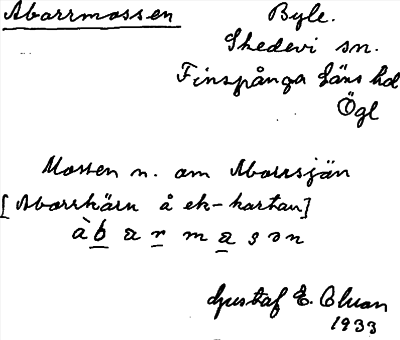 Aborrmossen Byle.
Skedevi sn.
Finspånga läns hd
Ögl
Mossen n. om Aborrsjän
[Aborrkärn å ek-kartan]
àbarmasən
Gustaf E. Oluan
1933